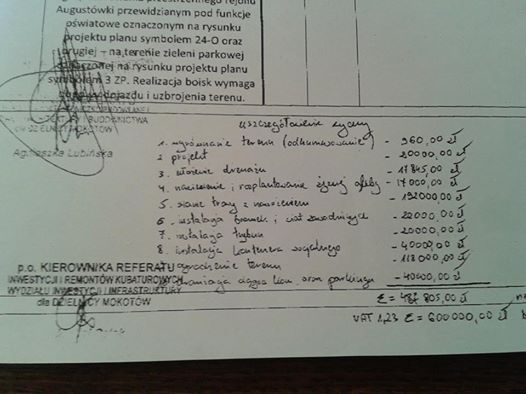 przestrzennego rejonu
Augustówki przewidzianym pod funkcje
oświatowe oznaczonym na rysunku
projektu planu symbolem 24-O oraz
drugiej – na terenie zieleni parkowej
na rysunku projektu planu
symbolem 3 ZP. Realizacja boisk wymaga
dojazdu i uzbrojenia terenu.
BUDOWNICTWA
MOKOTÓW
Agnieszka Lubińska
uszczegółowienie
1. wyrównanie terenu (odhumusowanie) - 960,00 zł
2 projekt - 20000,00 zł
3. ułożenie drenażu - 17845,00 zł
4. nawiezienie i rozplantowanie żyznej gleby - 17000,00 zł
5. sianie trawy z nawożeniem - 192000,00 zł
6. instalacja bramek i - 22000,00 zł
7. instalacja trybun - 20000,00 zł
8. instalacja kontenera socjalnego - 40000,00 zł
ogrodzenie terenu - 118000,00 zł
ciągu kom. oraz parkingu - 40000,00 zł
p.o. KIEROWNIKA REFERATU
INWESTYCJI I REMONTÓW KUBATUROWYCH
WYDZIAŁU INWESTYCJI I INFRASTRUKTURY
dla DZIELNICY MOKOTÓW
Σ = 487 805,00 zł
VAT 1,23 Σ = 600000,00 zł